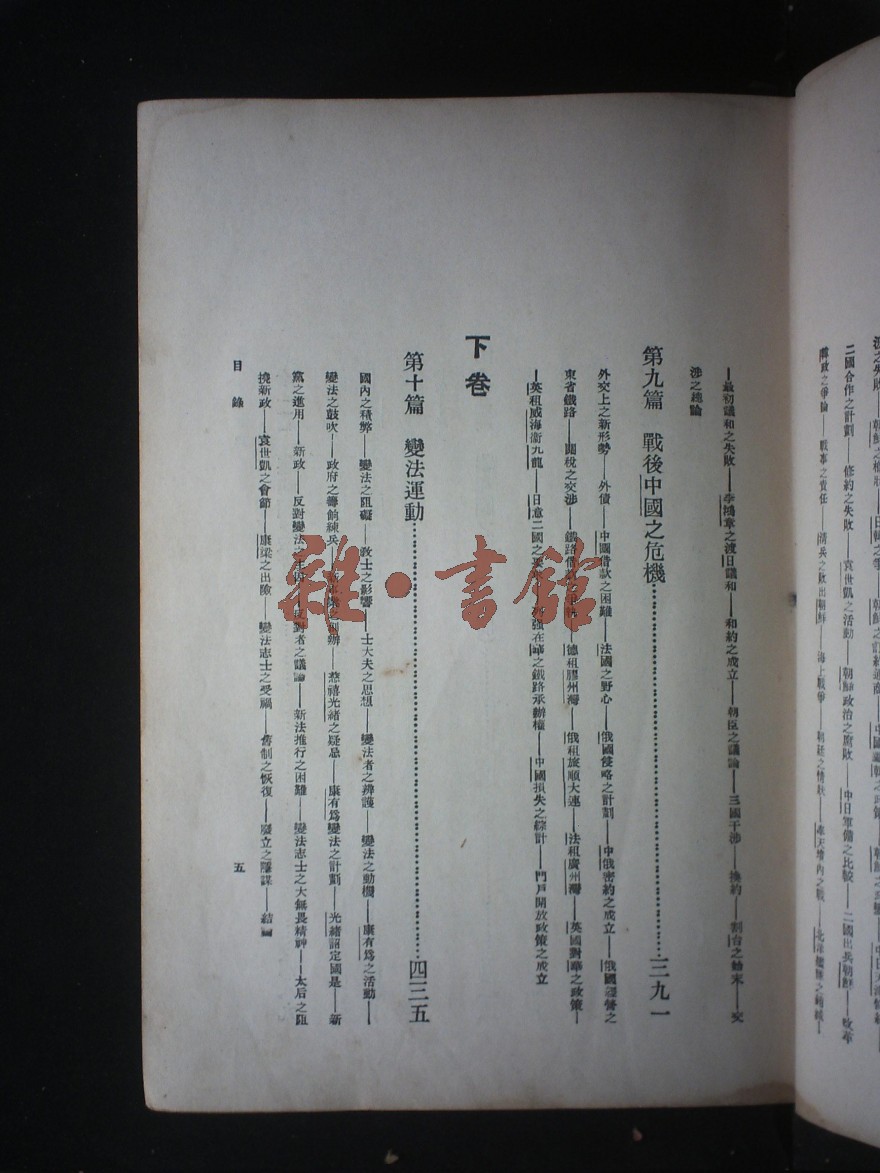 二國合作之計劃——修約之失敗——袁世凱之活動——朝鮮政治之腐敗——中日軍備之比較——二國出兵朝鮮——改革
韓政之爭論——戰事之責任——清兵之敗出朝鮮——海上戰爭——
——最初議和之失敗——李鴻章之渡日議和——和約之成立——朝臣之議論——三國干涉——換約——割台之始末——交
涉之總論
第九篇 戰後中國之危機……三九一
外交上之新形勢——外債——中國借款之困難——法國之野心——俄國侵略之計劃——中俄密約之成立——俄國經營之
東省鐵路——關稅之交涉——鐵路借款——德租膠州灣——俄租旅順大連——法租廣州灣——英國對華之政策——
——英租威海衞九龍——日意二國之要求——列強在華之鐵路承辦權——中國損失之綜計——門戶開放政策之成立
下卷
第十篇 變法運動……四三五
國內之積弊——變法之阻礙——敎士之影響——士大夫之思想——變法者之辨護——變法之動機——康有爲之活動——
變法之鼓吹——政府之籌餉練兵——創辦——慈禧光緒之疑忌——康有爲變法之計劃——光緒詔定國是——新
黨之進用——新政——反對變法之——反對者之議論——新法推行之困難——變法志士之大無畏精神——太后之阻
撓新政——袁世凱之會晤——康梁之出險——變法志士之受禍——舊制之恢復——廢立之陰謀——結論
目錄
五
雜·書館